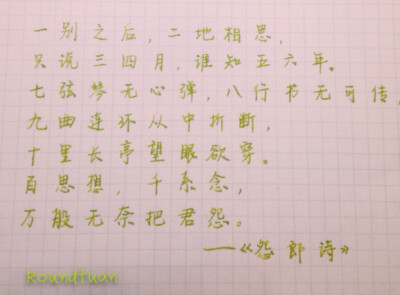 一别之后，二地相思，
只说三四月，谁知五六年。
七弦琴无心弹，八行书无可传，
九曲连环从中折断，
十里长亭望眼欲穿。
百思想，千系念，
万般无奈把君怨。
——《怨郎诗》
Roundtuan